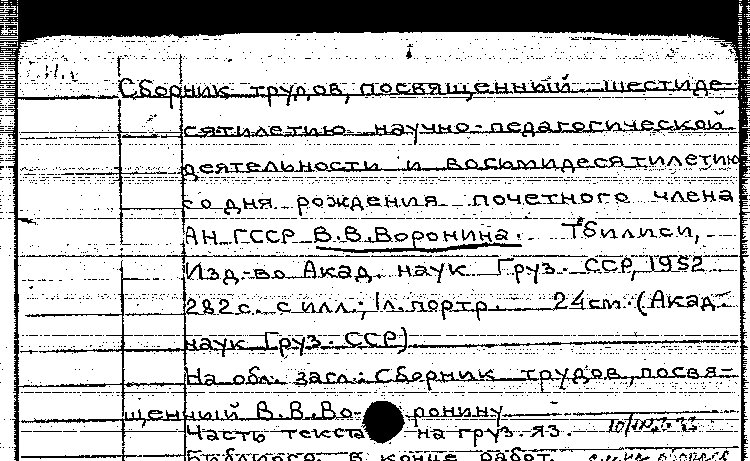 Сборник трудов, посвященный шестиде-
сятилетию научно-педагогической
деятельности и восьмидесятилетию
со дня рождения почетного члена
АН ГССР В.В.Воронина. Тбилиси,
Изд-во Акад. наук Груз. ССР, 1952
282 с. с илл.; 1л. портр. 24см. (Акад.
наук Груз. ССР)
На обл. загл.: Сборник трудов, посвя-
щенный В.В.Воронину
Часть текста на груз. яз.
Библиогр. в конце работ.